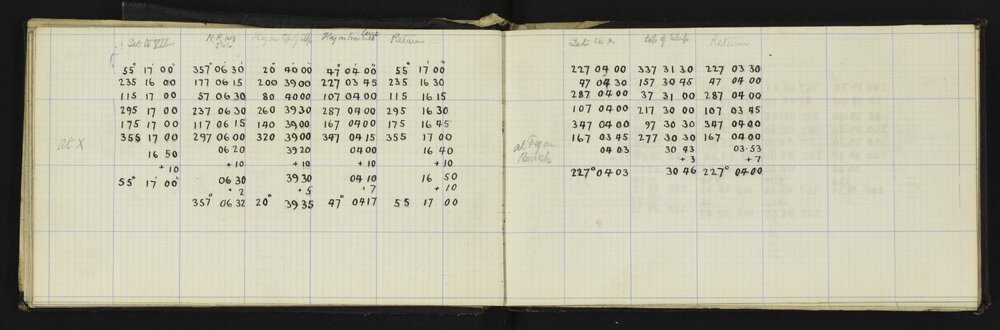 Set to VII N R Flag on top of Flag on Return
55° 17' 00" 357° 06' 30" 20° 40' 00" 47° 04' 00" 55° 17' 00"
235 16 00 177 06 15 200 39 00 227 03 45 235 16 30
115 17 00 57 06 30 80 40 00 107 04 00 115 16 15
295 17 00 237 06 30 260 39 30 287 04 00 295 16 30
175 17 00 117 06 15 140 39 00 167 04 00 175 16 45
355 17 00 297 06 00 320 39 00 347 04 15 355 17 00
at X
16 50 06 20 39 20 04 00 16 40
+ 10 + 10 + 10 + 10 + 10
55° 17' 00" 06 30 39 30 04 10 16 50
+ 2 + 5 + 7 + 10
357° 06 32 20° 39 35 47° 04 17 55 17 00
Set to X Return
227 04 00 337 31 30 227 03 30
47 04 30 157 30 45 47 04 00
287 04 00 37 31 00 287 04 00
107 04 00 217 30 00 107 03 45
347 04 00 97 30 30 347 04 00
167 03 45 277 30 30 167 04 00
at Flag on Beach
04 03 30 43 03.53
+ 3 + 7
227° 04 03 30 46 227° 04 00